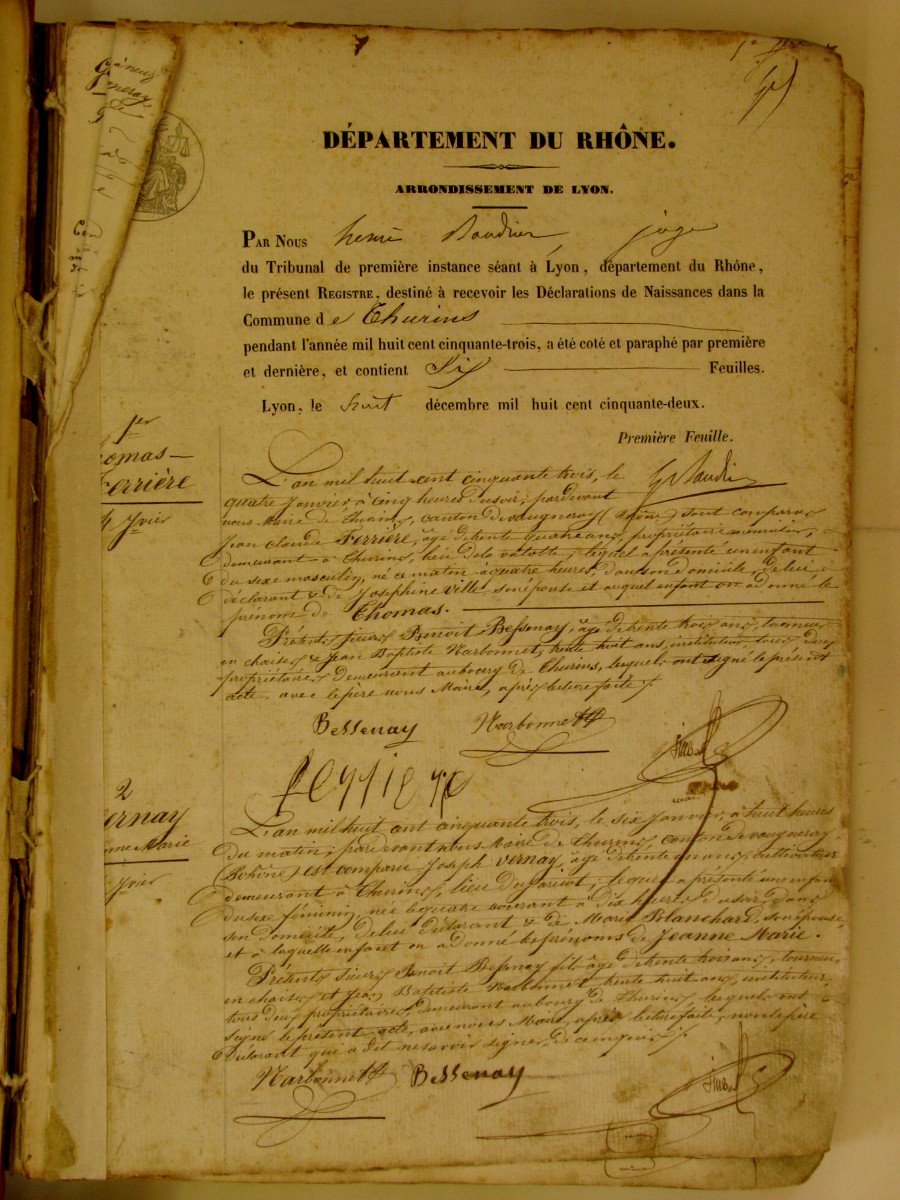 DÉPARTEMENT DU RHÔNE.
ARRONDISSEMENT DE LYON.
PAR NOUS henri Baudrier, juge
du Tribunal de première instance séant à Lyon, département du Rhône,
le présent REGISTRE, destiné à recevoir les Déclarations de Naissances dans la
Commune de Thurins
pendant l'année mil huit cent cinquante-trois, a été coté et paraphé par première
et dernière, et contient Six Feuilles.
Lyon, le huit décembre mil huit cent cinquante-deux.
Première Feuille.
1er
omas
Ferrière
4 Jvier
L'an mil huit cent cinquante trois, le
quatre Janvier à cinq heures du soir, pardevant
nous Maire de Thurins, canton de vaugneray (Rhône) sont comparus
Jean Claude Ferrière, âgé de trente quatre ans, propriétaire
demeurant à Thurins, lieu de la valotte, lequel a présenté un enfant
du sexe masculin, né ce matin à quatre heures, dans son domicile, de lui
déclarant & de Josephine Ville, son épouse et auquel enfant on a donné le
prénom de Thomas.
Présents sieurs Benoit Bessenay, âgé de trente trois ans, tourneur
en chaises & Jean Baptiste Narbonnet, trente huit ans, instituteur, tous deux
propriétaires demeurant au bourg de Thurins, lesquels ont signé le présent
acte avec le père nous Maire, après lecture faite
Bessenay Narbonnet
ferriere
2
ernay
nne Marie
Jvier
L'an mil huit cent cinquante trois, le six Janvier, à huit heures
du matin, pardevant nous Maire de Thurins, canton de vaugneray
(Rhône) est comparu Joseph Vernay, âgé de trente un ans, cultivateur
demeurant à Thurins, lieu du lequel a présenté une enfant
du sexe féminin, née le quatre courant à dix heures du soir, dans
son domicile, de lui déclarant & de Marie Blanchard, son épouse,
et à laquelle enfant on a donné les prénoms de Jeanne Marie.
Présents sieurs Benoit Bessenay fils âgé de trente trois ans, tourneur
en chaises et Jean Baptiste Narbonnet trente huit ans, instituteur
tous deux propriétaires, demeurant au bourg de Thurins, lesquels ont
signé le présent acte, avec nous Maire, après lecture faite, non le père
déclarant qui a dit ne savoir signer de ce requis
Narbonnet Bessenay